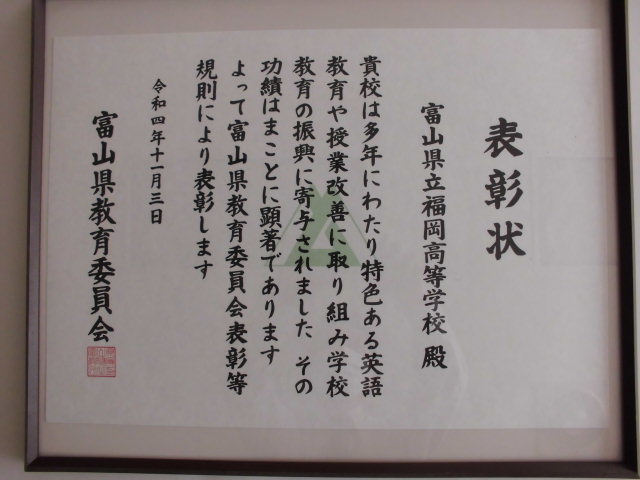 表彰状
富山県立福岡高等学校 殿
貴校は多年にわたり特色ある英語
教育や授業改善に取り組み学校
教育の振興に寄与されました その
功績はまことに顕著であります
よって富山県教育委員会表彰等
規則により表彰します
令和四年十一月三日
富山県教育委員会